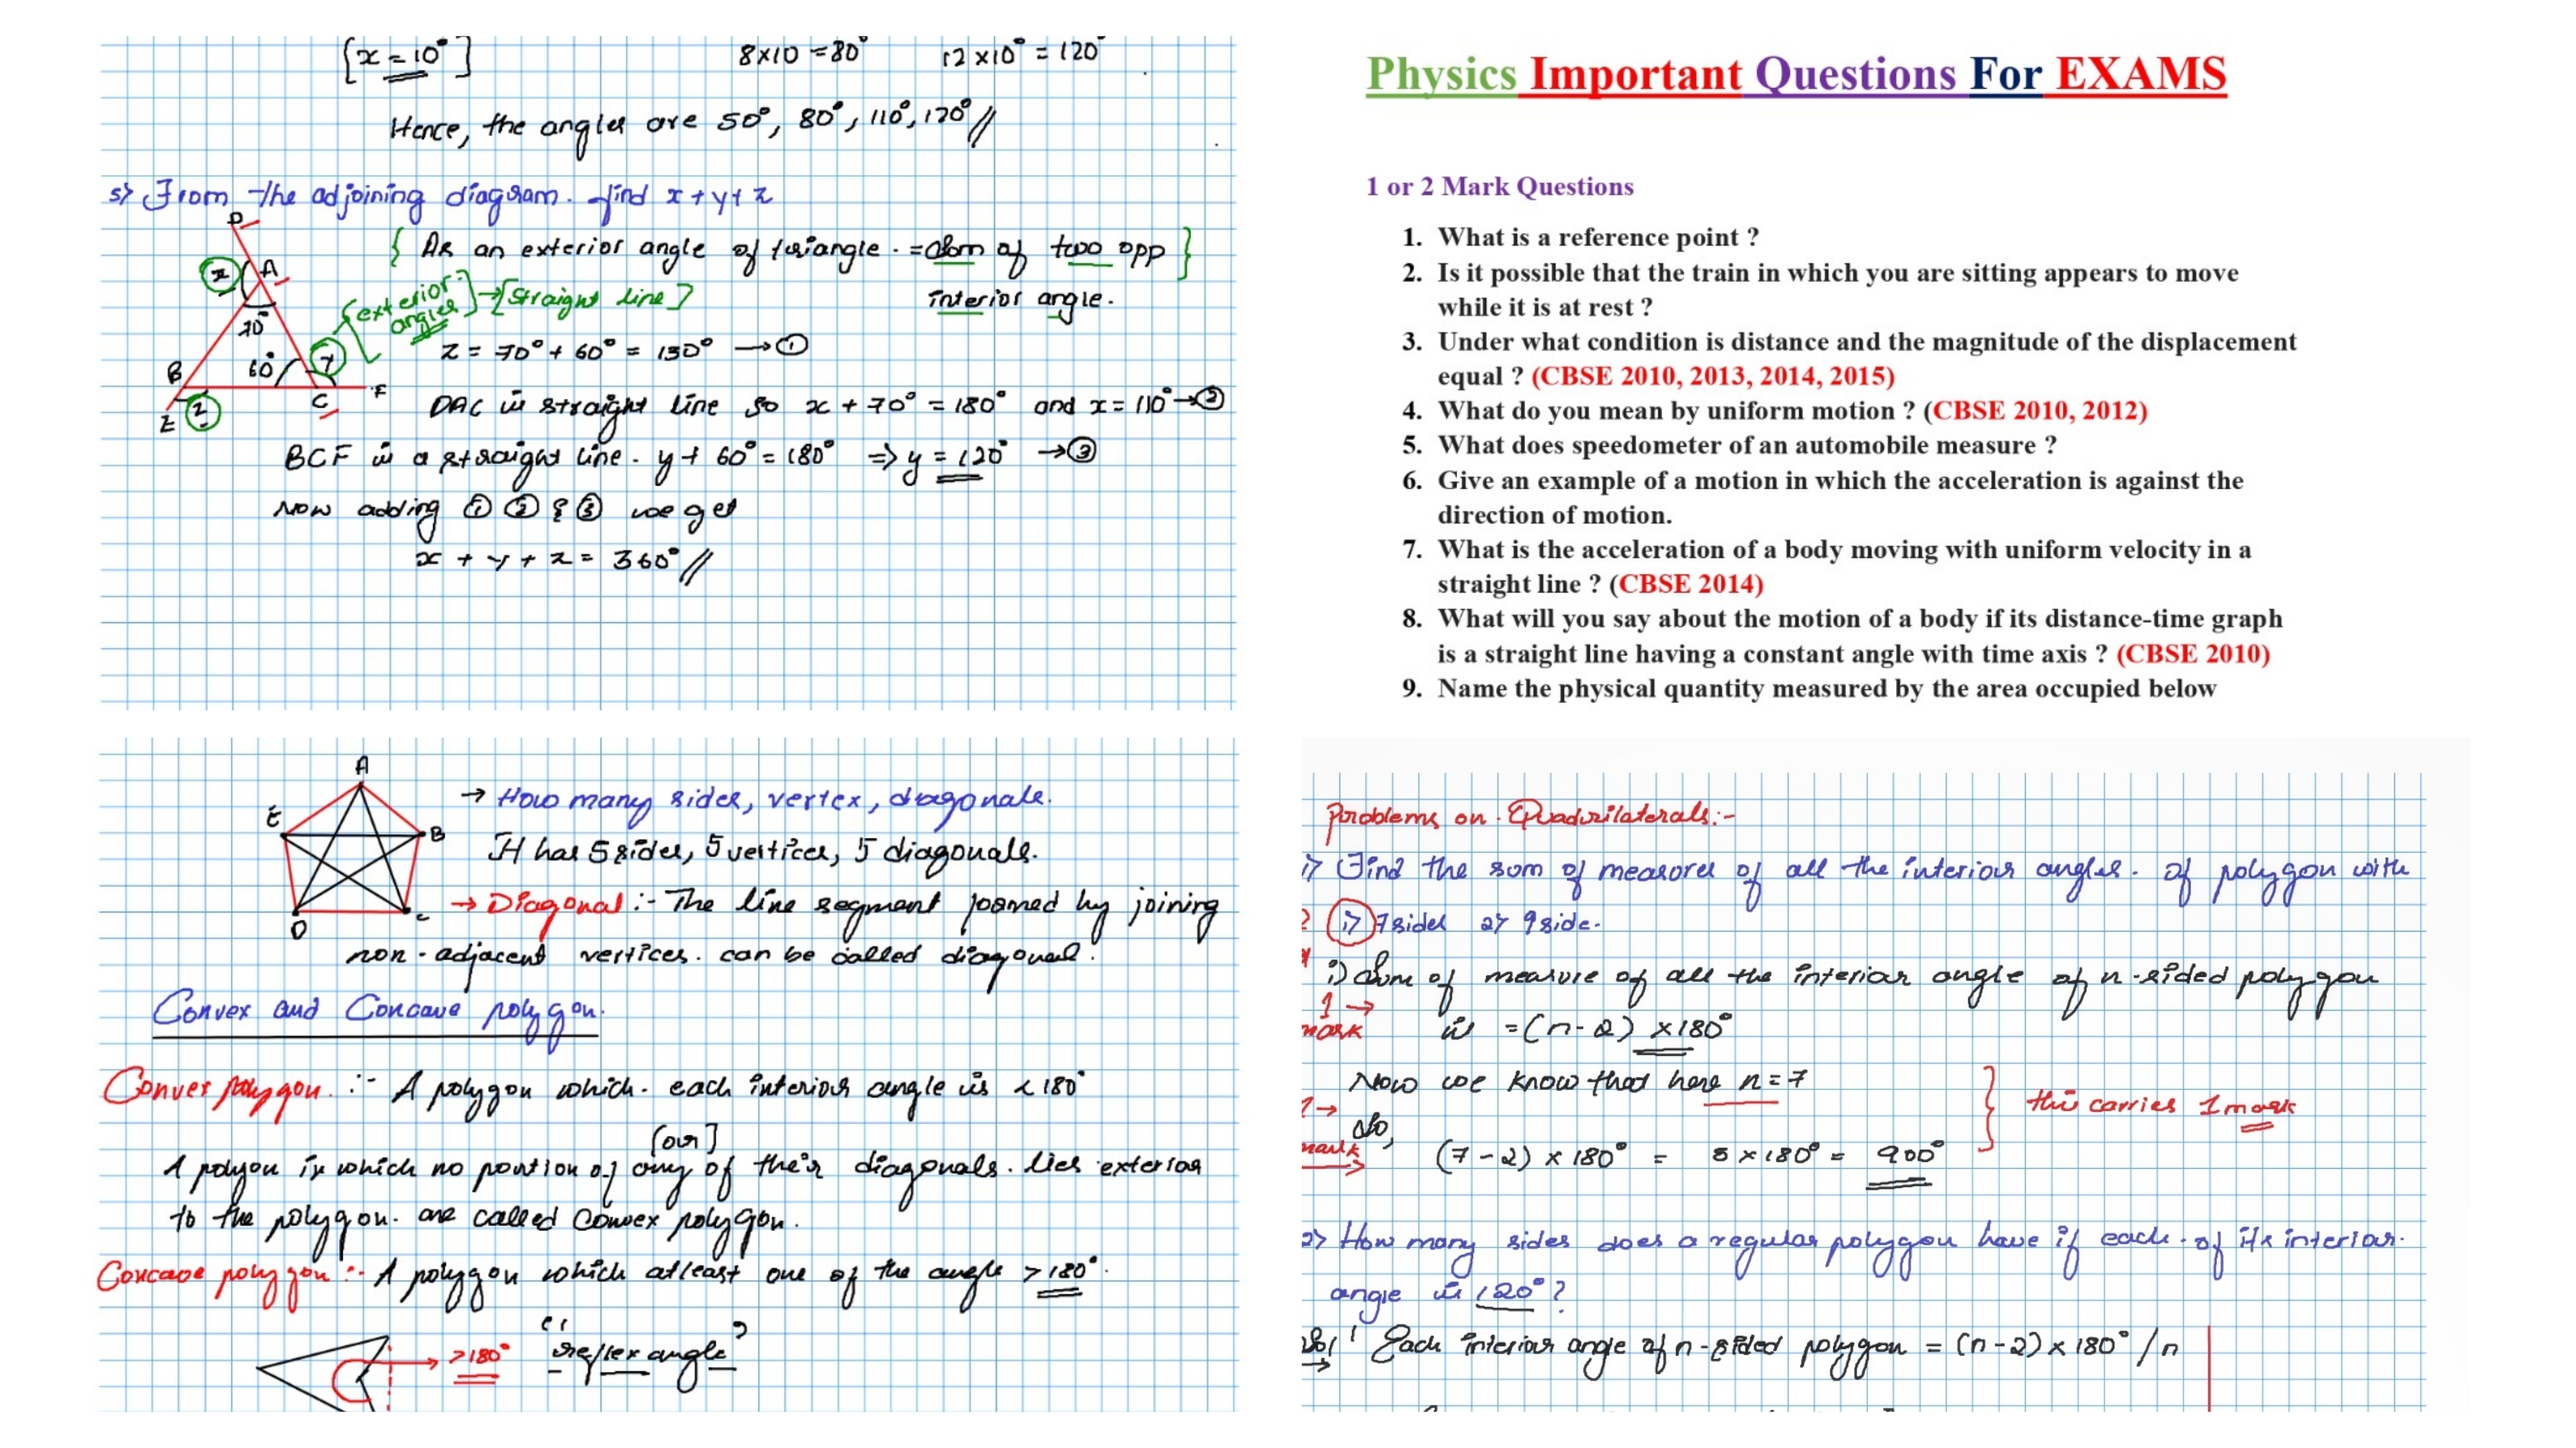 [x = 10°]
8×10 = 80°
12×10° = 120°
Hence, the angles are 50°, 80°, 110°, 120° //
5> From the adjoining diagram. find x + y + z
{ As an exterior angle of triangle. = Sum of two opp }
interior angle.
D
x
A
70°
60°
y
B
C
F
E
z
{exterior angles] → [straight line]
z = 70° + 60° = 130° → ①
DAC is straight line so x + 70° = 180° and x = 110° → ②
BCF is a straight line. y + 60° = 180° ⇒ y = 120° → ③
Now adding ① ② & ③ we get
x + y + z = 360° //
Physics Important Questions For EXAMS
1 or 2 Mark Questions
1. What is a reference point ?
2. Is it possible that the train in which you are sitting appears to move
while it is at rest ?
3. Under what condition is distance and the magnitude of the displacement
equal ? (CBSE 2010, 2013, 2014, 2015)
4. What do you mean by uniform motion ? (CBSE 2010, 2012)
5. What does speedometer of an automobile measure ?
6. Give an example of a motion in which the acceleration is against the
direction of motion.
7. What is the acceleration of a body moving with uniform velocity in a
straight line ? (CBSE 2014)
8. What will you say about the motion of a body if its distance-time graph
is a straight line having a constant angle with time axis ? (CBSE 2010)
9. Name the physical quantity measured by the area occupied below
A
E
B
D
C
→ How many sides, vertex, diagonals.
It has 5 sides, 5 vertices, 5 diagonals.
→ Diagonal :- The line segment joamed by joining
non-adjacent vertices. can be called diagonal.
Convex and Concave polygon.
Convex polygon :- A polygon which. each interior angle is < 180°
[or]
A polyon in which no portion of any of their diagonals. lies exterior
to the polygon. are called Convex polygon.
Concave polygon :- A polygon which atleast one of the angle > 180°.
>180°
"reflex angle"
Problems on Quadrilaterals:-
1> Find the sum of measures of all the interior angles. of polygon with
i> 7 sides 2> 9 side.
i) Sum of measure of all the interior angle of n-sided polygon
1 →
mark
is = (n-2) ×180°
Now we know that here n = 7
So,
mark
(7-2) × 180° = 5 × 180° = 900°
this carries 1 mark
2> How many sides does a regular polygon have if each of its interior.
angle is 120°?
Sol' Each interior angle of n-sided polygon = (n-2) × 180° / n